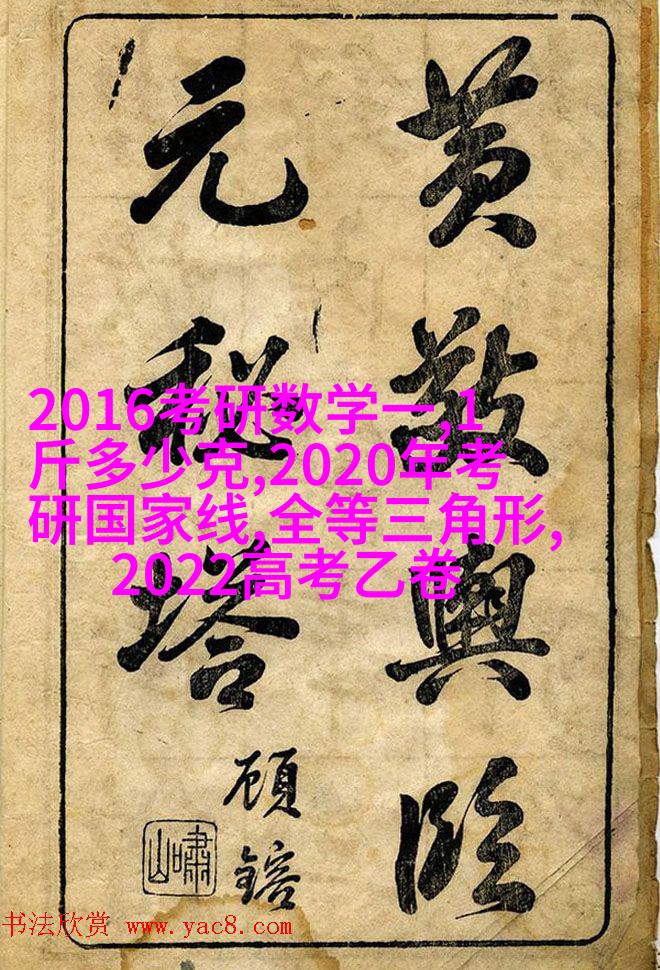 黄敬輿臨
元秘塔
顧鎔
嘯山
2016考研数学一,1
斤多少克,2020年考
研国家线,全等三角形,
2022高考乙卷
书法欣赏 www.yac8.com